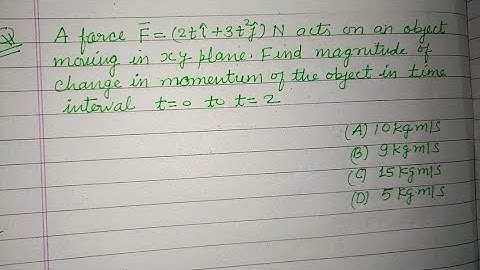 Q A force F̅ = (2tî + 3t²ĵ) N acts on an object
moving in xy plane. Find magnitude of
change in momentum of the object in time
interval t=0 to t=2
(A) 10 kgm/s
(B) 9 kgm/s
(C) 15 kgm/s
(D) 5 kgm/s